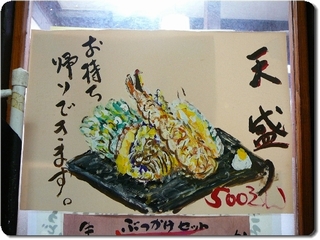 天盛
お持ち
帰りできます。
500えん
ぶっかけセット